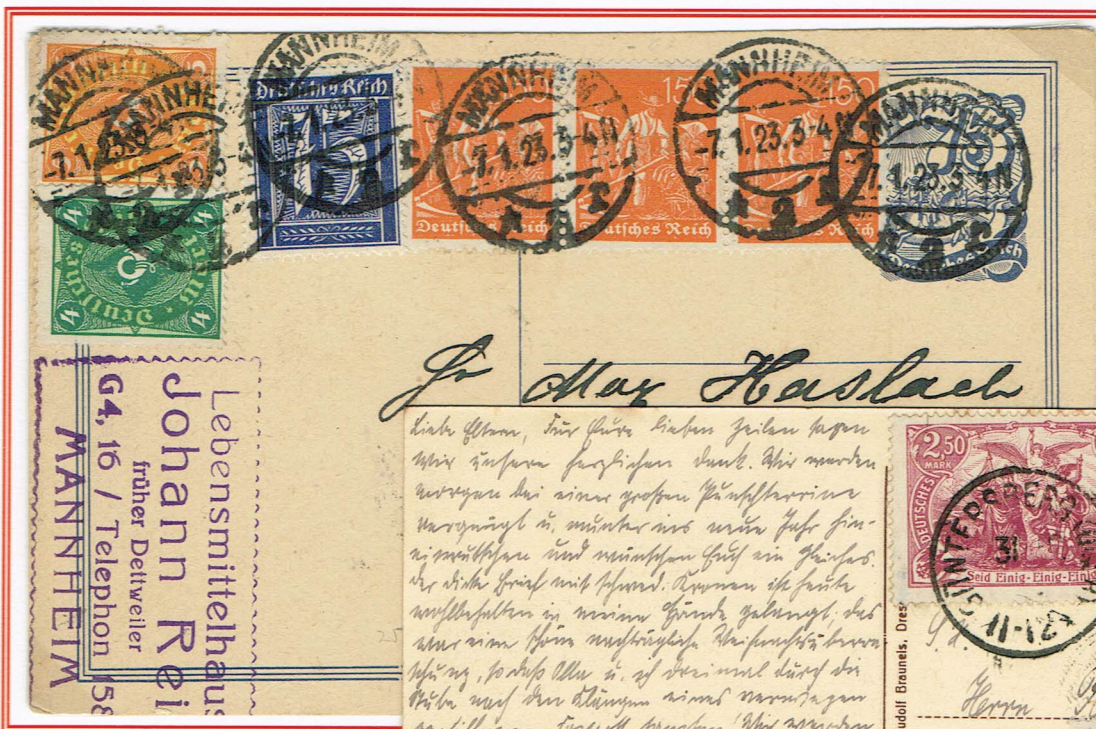 MANNHEIM
-7.1.23.3-4N
* 2 r
MANNHEIM
MANNHEIM
-7.1.23.3-4N
MANNHEIM
-7.1.23.3-4N
* 2 r
MANNHEIM
7.1.23.3-4N
* 2 r
Deutsches Reich
150
150
Deutsches Reich
Deutsches Reich
Deutsches Reich
4
4
4
Max Haslach
Lebensmittelhaus
Johann Rei
früher Dettweiler
G4, 16 / Telephon 158
MANNHEIM
Liebe Eltern, Für Eure lieben Zeilen sagen
wir unsere herzlichen Dank. Wir werden
morgen bei einer großen Punschterrine
vergnügt u. munter ins neue Jahr hin-
eigrutschen und wünschen Euch ein Gleiches.
Der dicke Brief mit schwed. Kronen ist heute
wohlbehalten in meine Hände gelangt; das
war eine schöne nachträgliche Weihnachtsüberra
schung, so daß Olla u. ich dreimal durch die
Stube nach den Klängen eines
Wir werden
2,50
MARK
DEUTSCHES
Seid Einig-Einig-Ein
31
11-12
udolf Brauneis, Dres
Herrn